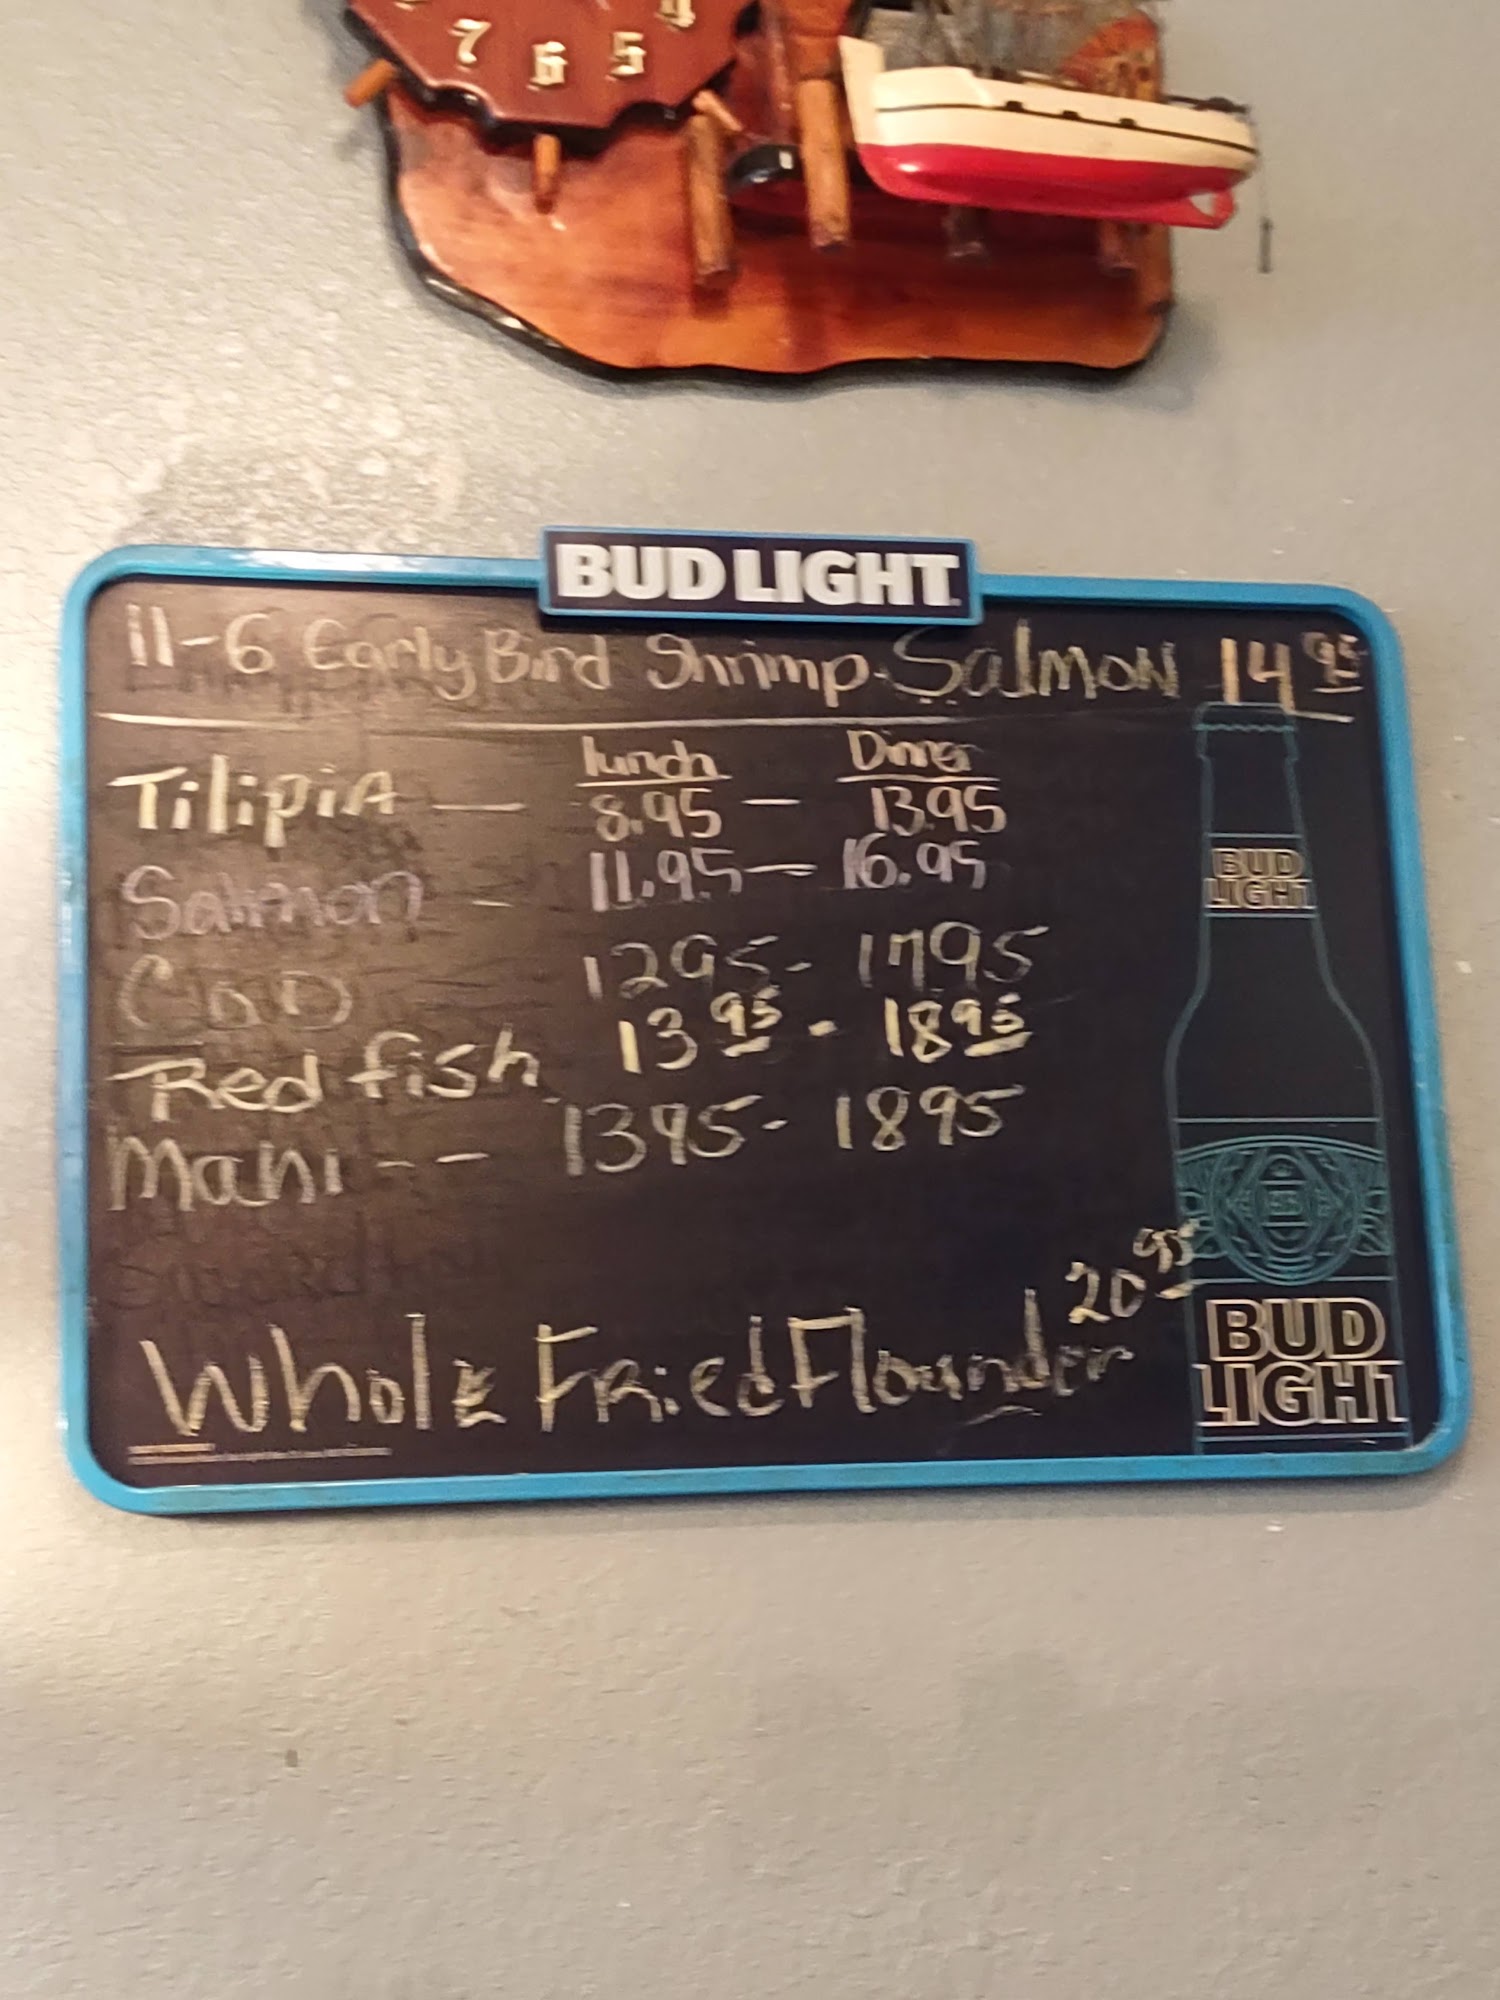 7 6 5
BUD LIGHT
11-6 Early Bird Shrimp-Salmon 14 95
lunch Dinner
TilipiA — 8.95 — 13.95
Salmon - 11.95 — 16.95
COD 1295- 1795
Red fish 13 95 - 18 95
Mahi -- 1395- 1895
20 95
WholE FRied Flounder
BUD
LIGHT
BUD
LIGHT